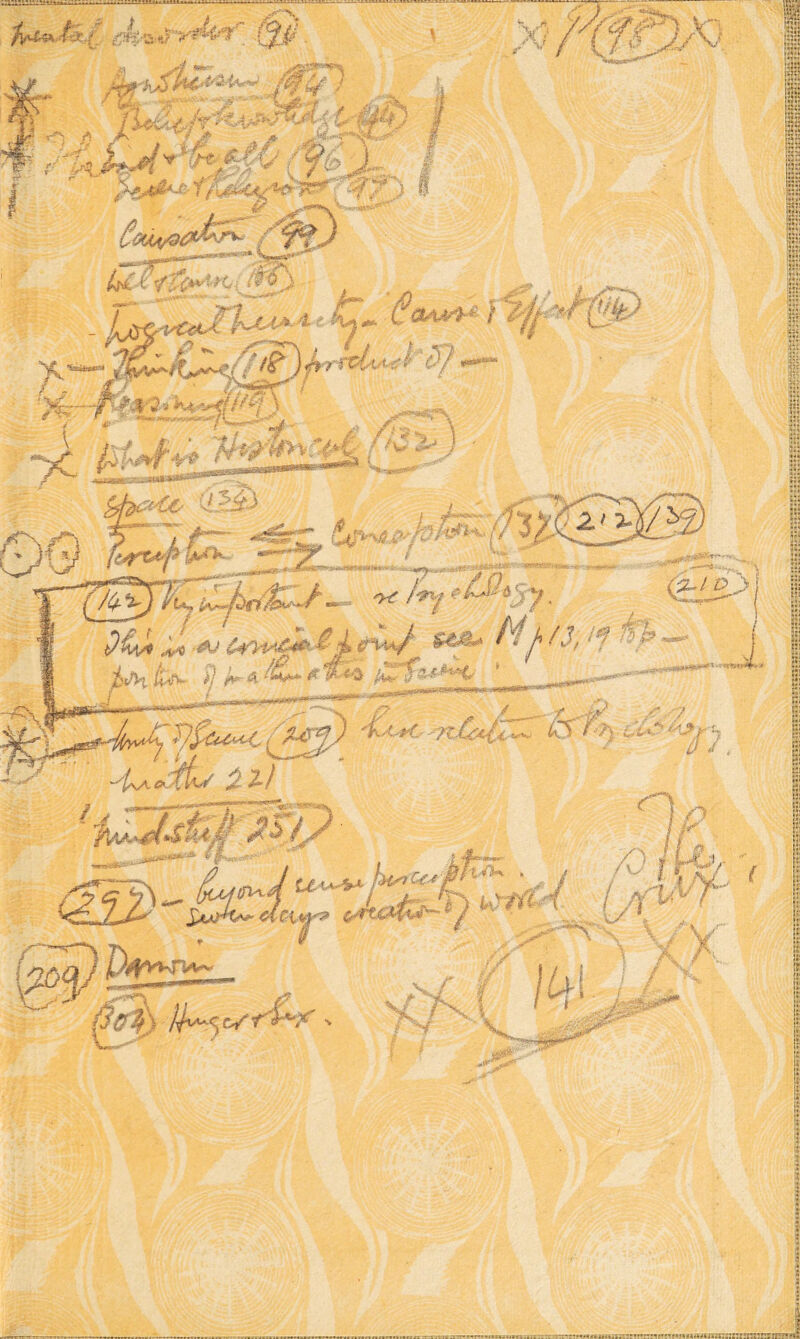 mental disorder 91
X P 98 X
Agnoticism 94
Belief & knowledge 94
The End & be all 96
Science & Religion 97
Causation 99
Will & Cause 106
- Logical necessity - Cause & Effect 114
X — Thinking 118 product of —
X — Reasoning 119
X What is Historical 132
Space 134
Perception ⇌ Conception 137 212 139
142 Very important — re Psychology. 210
This is a crucial point see M p 13, 19 top —
position of mathematics in Science
Unity of Science 209 here relation to Psychology.
matter 221
'mind stuff 251
The Crux
297 — beyond sense perception.
Seven days creation of world
209 Darwin
XX 141 XX
304 Hunger & Sex.